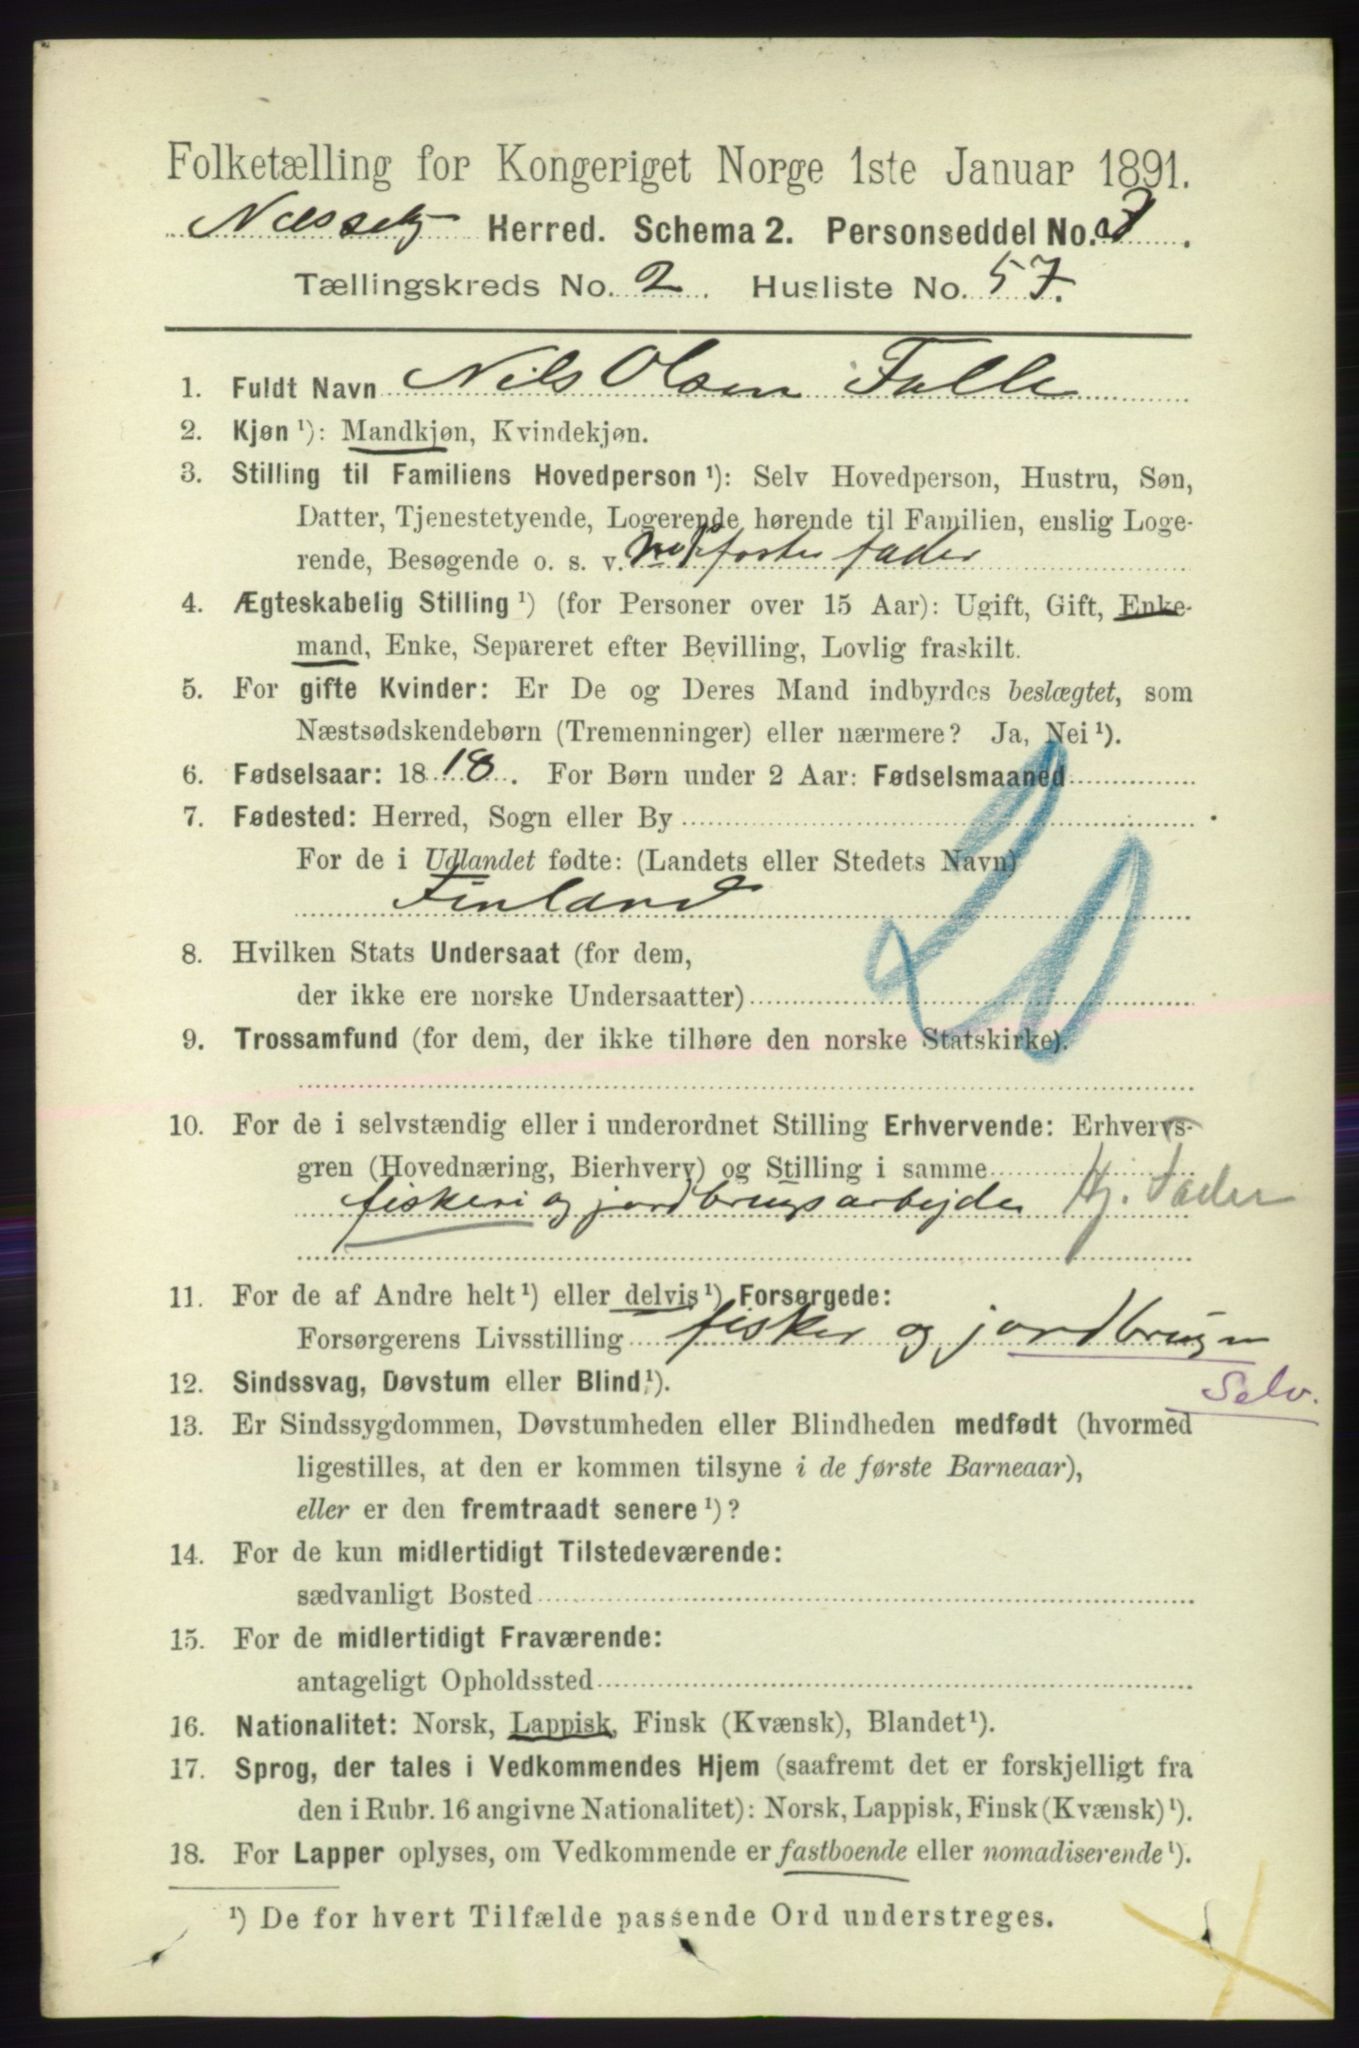 Folketælling for Kongeriget Norge 1ste Januar 1891.
Næsseby Herred. Schema 2. Personseddel No. 3.
Tællingskreds No. 2. Husliste No. 57.
1. Fuldt Navn Nils Olsen Falle
2. Kjøn ¹): Mandkjøn, Kvindekjøn.
3. Stilling til Familiens Hovedperson ¹): Selv Hovedperson, Hustru, Søn,
Datter, Tjenestetyende, Logerende hørende til Familien, enslig Loge-
rende, Besøgende o. s. v. foster fader
4. Ægteskabelig Stilling ¹) (for Personer over 15 Aar): Ugift, Gift, Enke-
mand, Enke, Separeret efter Bevilling, Lovlig fraskilt.
5. For gifte Kvinder: Er De og Deres Mand indbyrdes beslægtet, som
Næstsødskendebørn (Tremenninger) eller nærmere? Ja, Nei ¹).
6. Fødselsaar: 18 18. For Børn under 2 Aar: Fødselsmaaned
7. Fødested: Herred, Sogn eller By
For de i Udlandet fødte: (Landets eller Stedets Navn)
Finland
20
8. Hvilken Stats Undersaat (for dem,
der ikke ere norske Undersaatter)
9. Trossamfund (for dem, der ikke tilhøre den norske Statskirke).
10. For de i selvstændig eller i underordnet Stilling Erhvervende: Erhvervs-
gren (Hovednæring, Bierhverv) og Stilling i samme
fiskeri og jordbrugsarbejde Hj. Fader
11. For de af Andre helt ¹) eller delvis ¹) Forsørgede:
Forsørgerens Livsstilling fisker og jordbruger
Selv.
12. Sindssvag, Døvstum eller Blind ¹).
13. Er Sindssygdommen, Døvstumheden eller Blindheden medfødt (hvormed
ligestilles, at den er kommen tilsyne i de første Barneaar),
eller er den fremtraadt senere ¹)?
14. For de kun midlertidigt Tilstedeværende:
sædvanligt Bosted
15. For de midlertidigt Fraværende:
antageligt Opholdssted
16. Nationalitet: Norsk, Lappisk, Finsk (Kvænsk), Blandet ¹).
17. Sprog, der tales i Vedkommendes Hjem (saafremt det er forskjelligt fra
den i Rubr. 16 angivne Nationalitet): Norsk, Lappisk, Finsk (Kvænsk) ¹).
18. For Lapper oplyses, om Vedkommende er fastboende eller nomadiserende ¹).
¹) De for hvert Tilfælde passende Ord understreges.